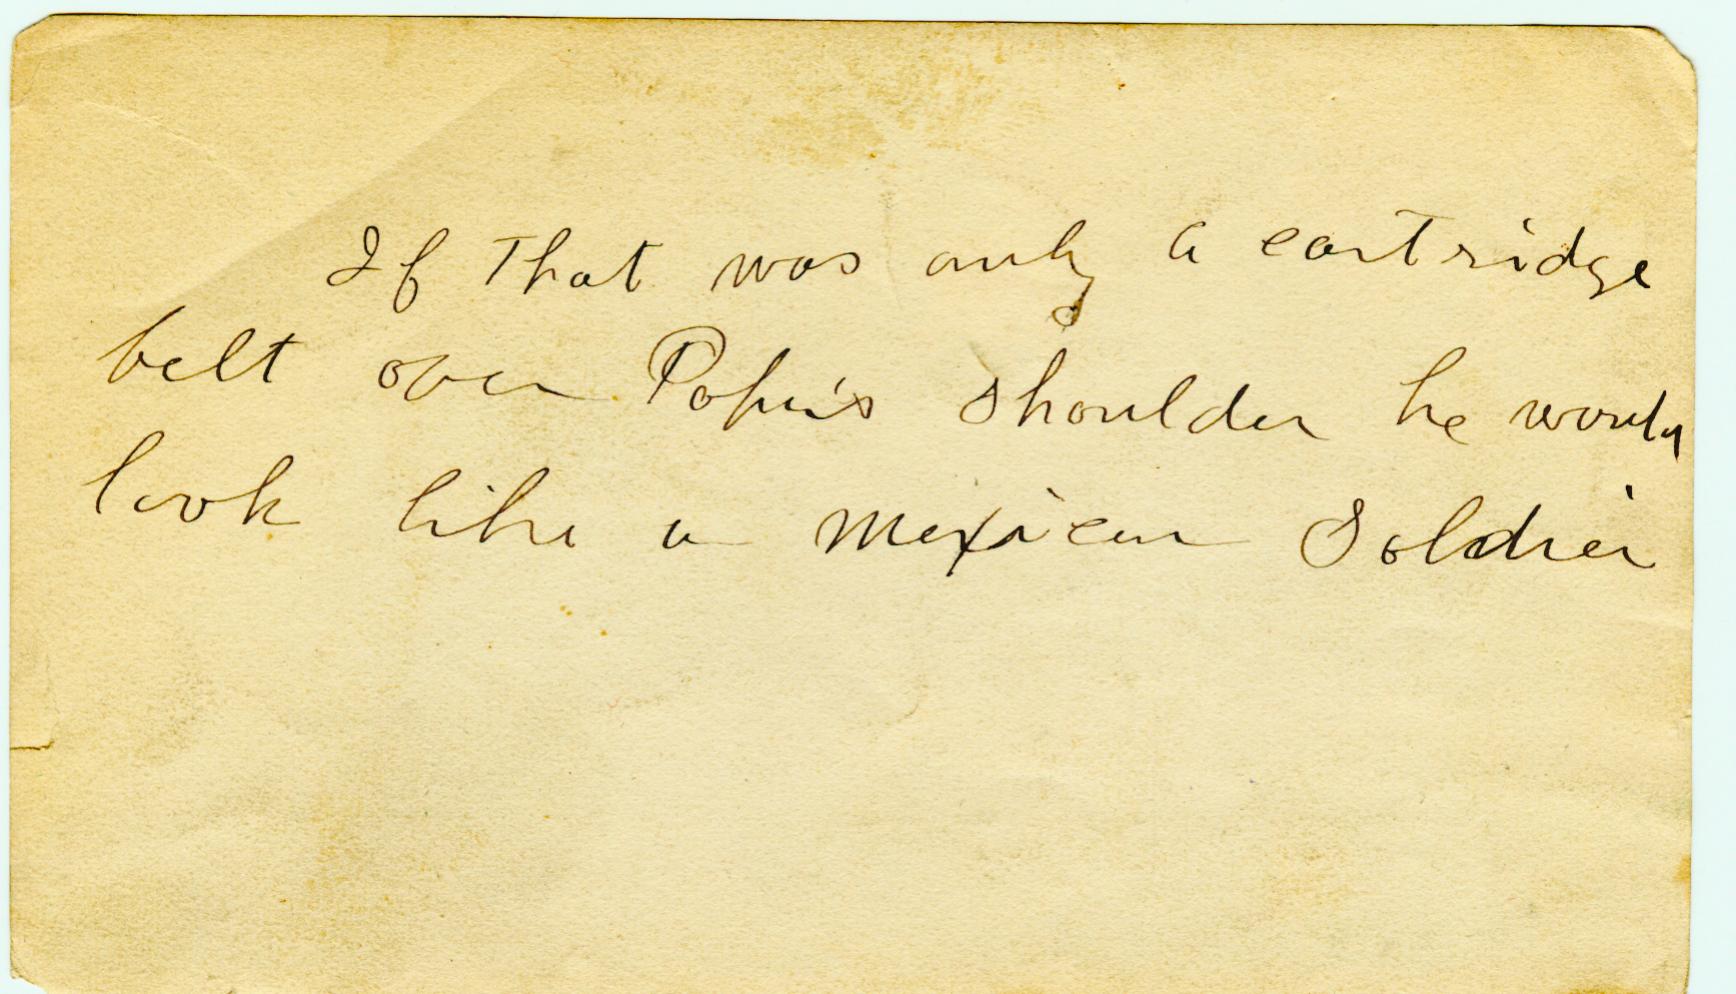 If That was only a cartridge
belt over Pohn's shoulder he would
look like a Mexican Soldier